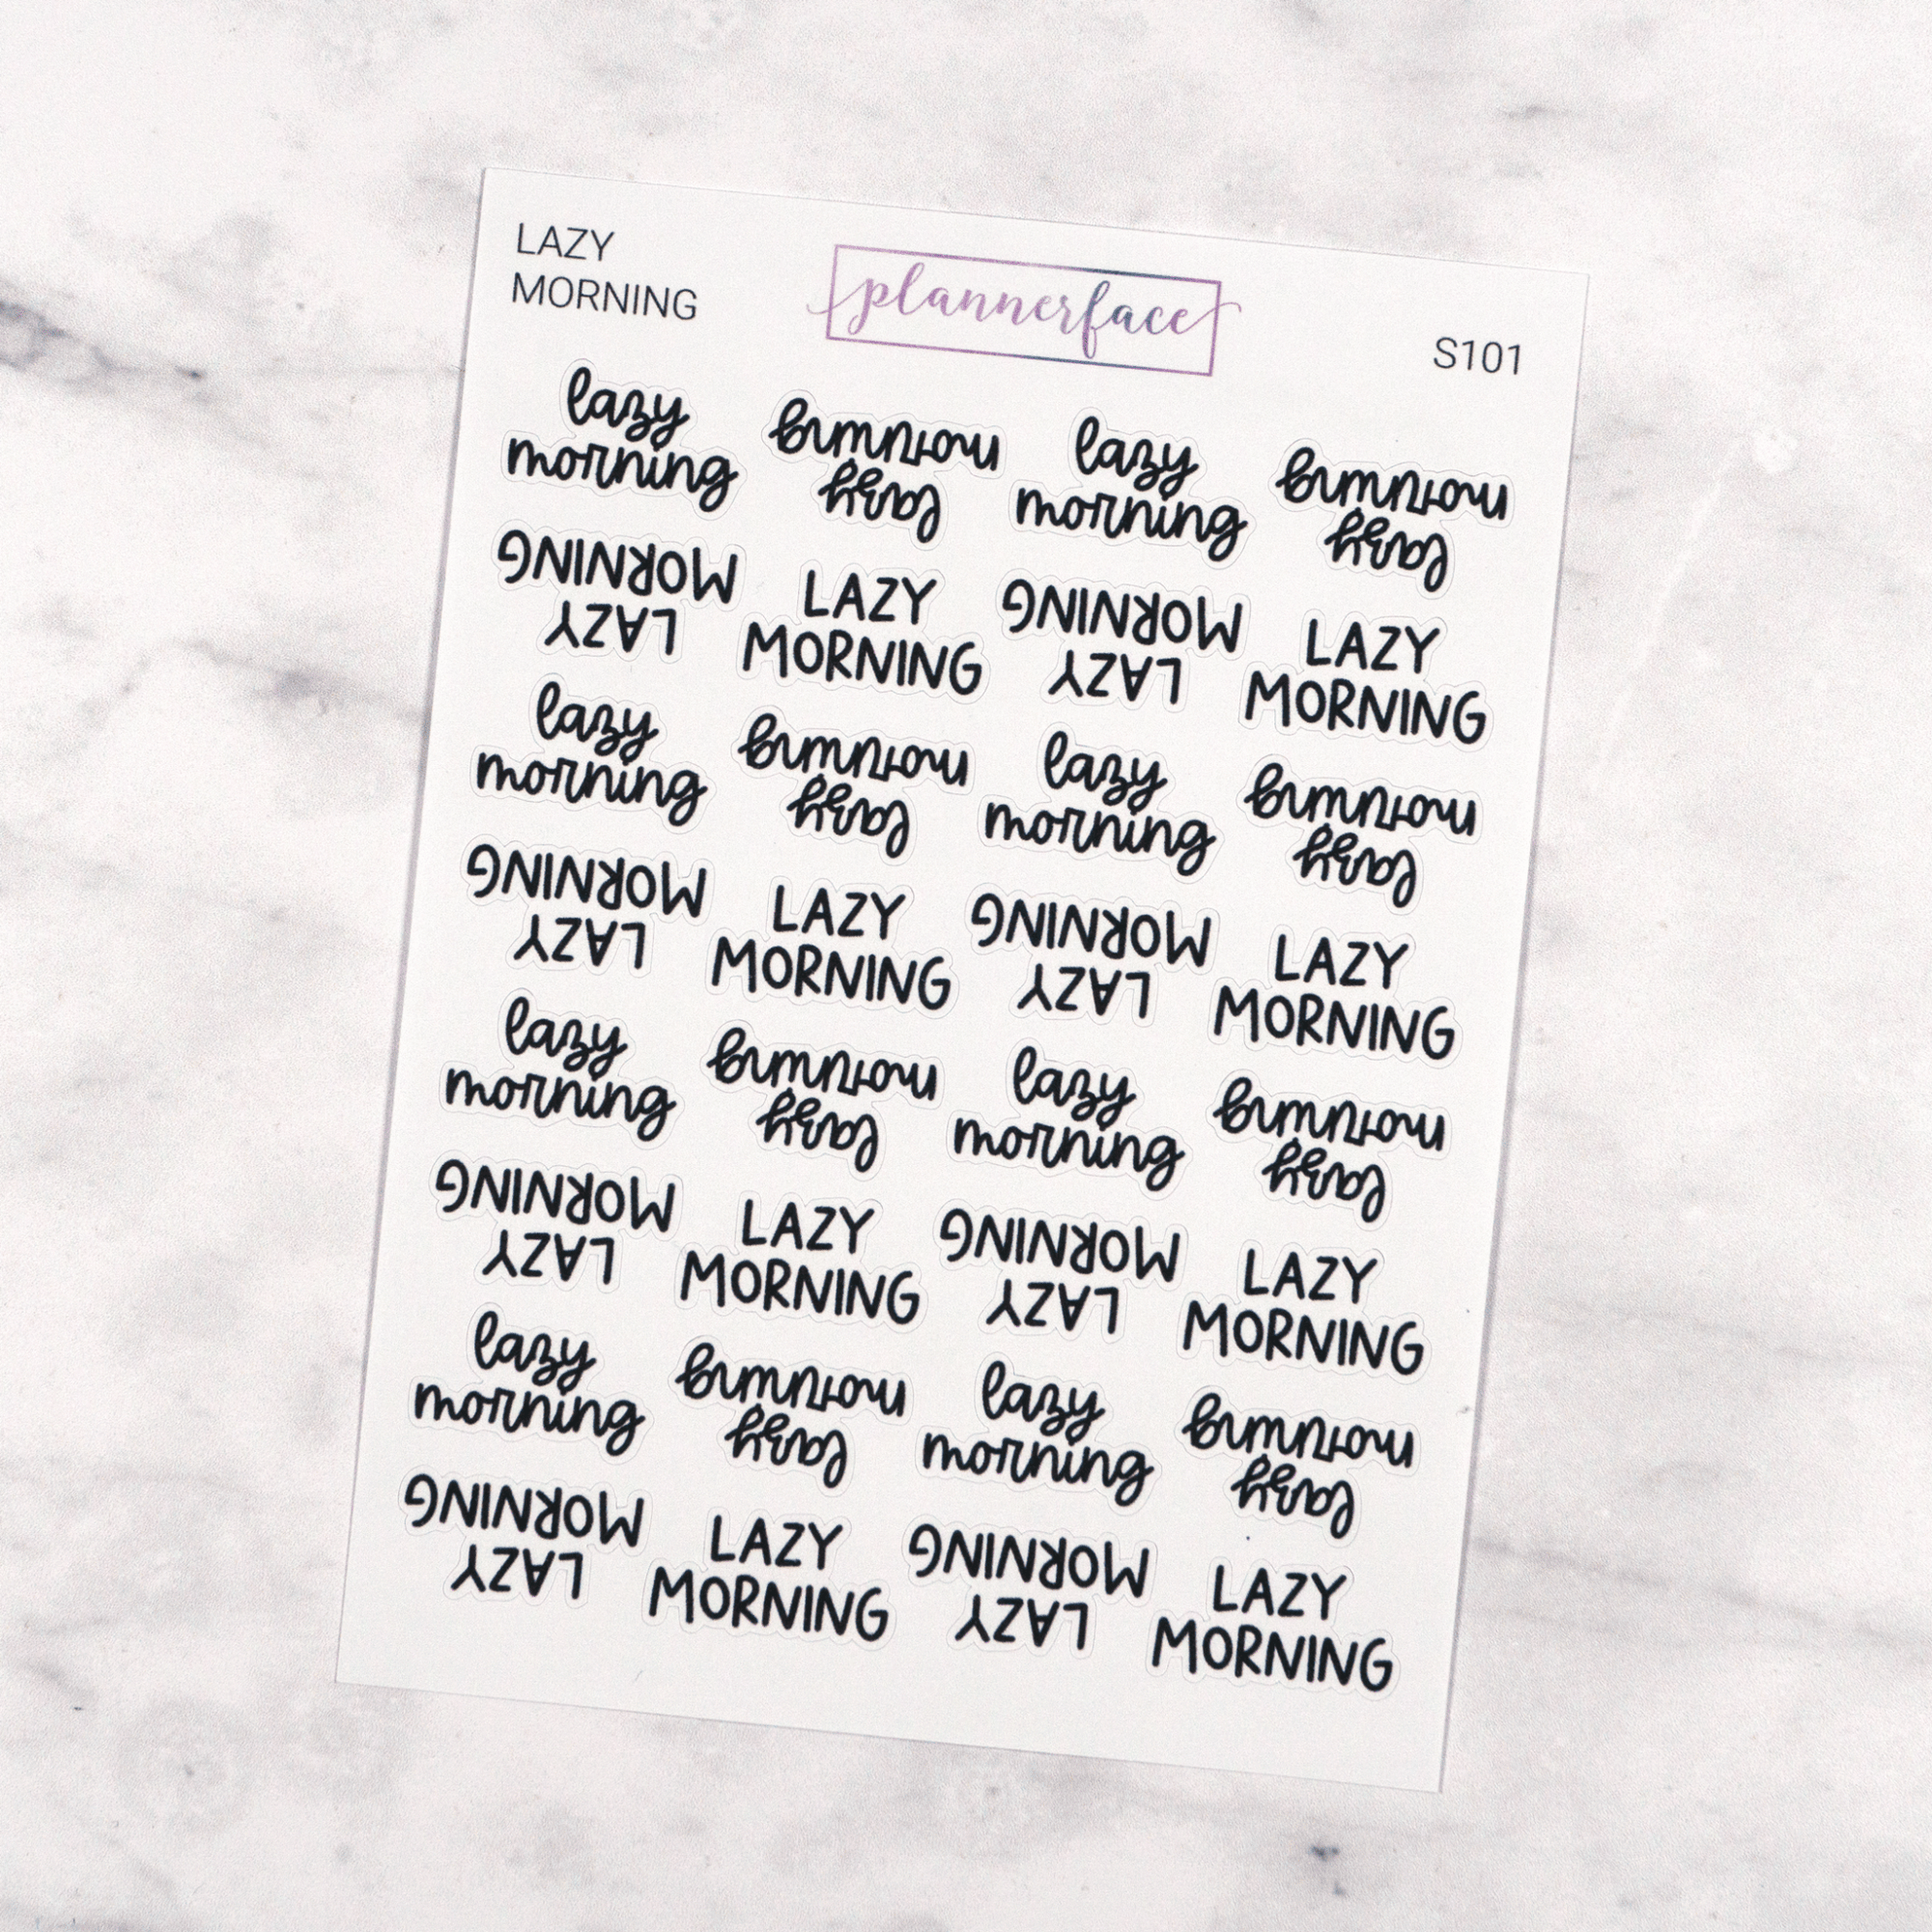 LAZY
MORNING
plannerface
S101
lazy
morning
lazy
morning
lazy
morning
lazy
morning
LAZY
MORNING
LAZY
MORNING
LAZY
MORNING
LAZY
MORNING
lazy
morning
lazy
morning
lazy
morning
lazy
morning
LAZY
MORNING
LAZY
MORNING
LAZY
MORNING
LAZY
MORNING
lazy
morning
lazy
morning
lazy
morning
lazy
morning
LAZY
MORNING
LAZY
MORNING
LAZY
MORNING
LAZY
MORNING
lazy
morning
lazy
morning
lazy
morning
lazy
morning
LAZY
MORNING
LAZY
MORNING
LAZY
MORNING
LAZY
MORNING